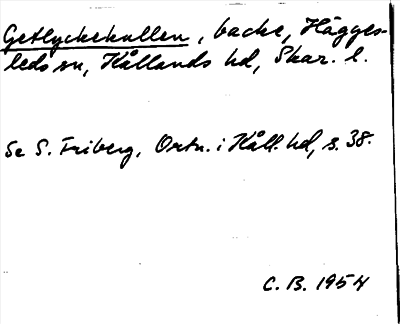 Getlyckekullen, backe, Hägges-
leds sn, Kållands hd, Skar. l.
Se S. Friberg, Ortn. i Kåll. hd, s. 38.
C. B. 1954